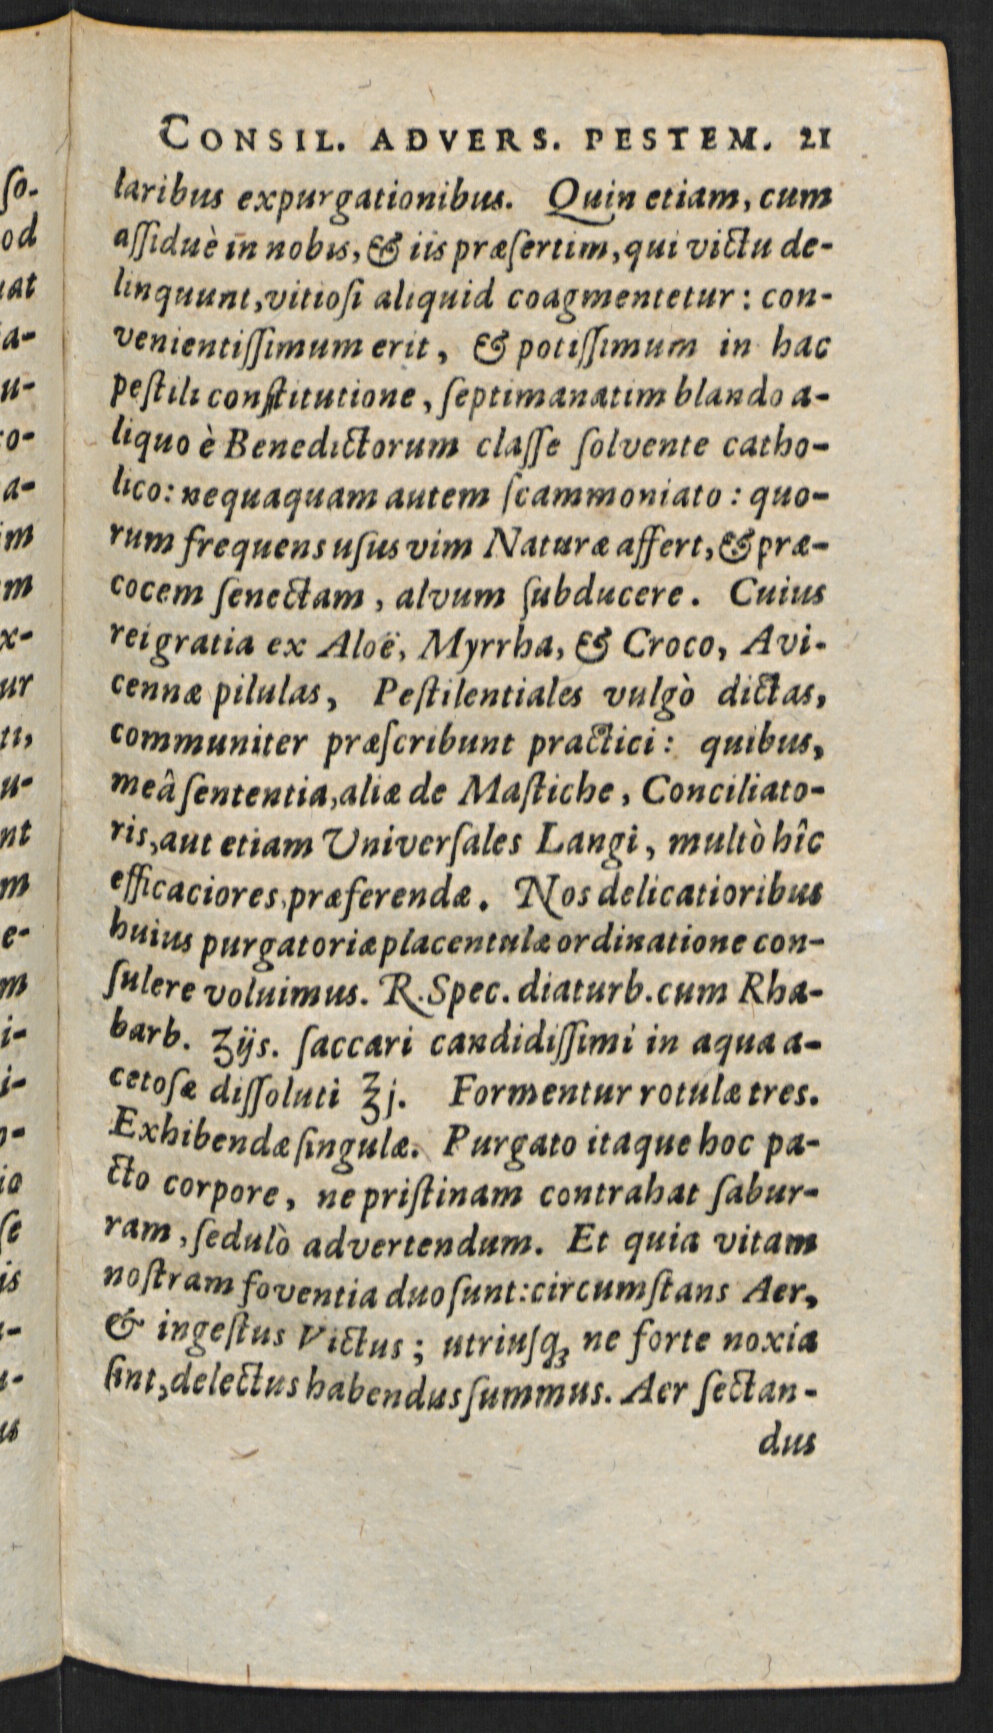 CONSIL. ADVERS. PESTEM. 21
laribus expurgationibus. Quin etiam, cum
aſſiduè in nobis, & iis præſertim, qui victu de-
linquunt, vitioſi aliquid coagmentetur: con-
venientiſſimum erit, & potiſſimum in hac
peſtili conſtitutione, ſeptimanatim blando a-
liquo è Benedictorum claſſe ſolvente catho-
lico: nequaquam autem ſcammoniato: quo-
rum frequens uſus vim Naturæ affert, & præ-
cocem ſenectam, alvum ſubducere. Cuius
rei gratia ex Aloë, Myrrha, & Croco, Avi-
cennæ pilulas, Peſtilentiales vulgò dictas,
communiter præſcribunt practici: quibus,
meâ ſententia, aliæ de Maſtiche, Conciliato-
ris, aut etiam Univerſales Langi, multò hîc
efficaciores, præferendæ. Nos delicatioribus
huius purgatoriæ placentulæ ordinatione con-
ſulere voluimus. R. Spec. diaturb. cum Rha-
barb. ʒijs. ſaccari candidiſſimi in aqua a-
cetoſæ diſſoluti ℥j. Formentur rotulæ tres.
Exhibendæ ſingulæ. Purgato itaque hoc pa-
cto corpore, ne priſtinam contrahat ſabur-
ram, ſedulò advertendum. Et quia vitam
noſtram foventia duo ſunt: circumſtans Aer,
& ingeſtus Victus; utriuſqꝫ ne forte noxia
ſint, delectus habendus ſummus. Aer ſectan-
dus
ſo-
od
uat
a-
u-
co-
a-
im
m
x-
ur
u-
nt
m
e-
m
i-
i-
io
ſe
is
us